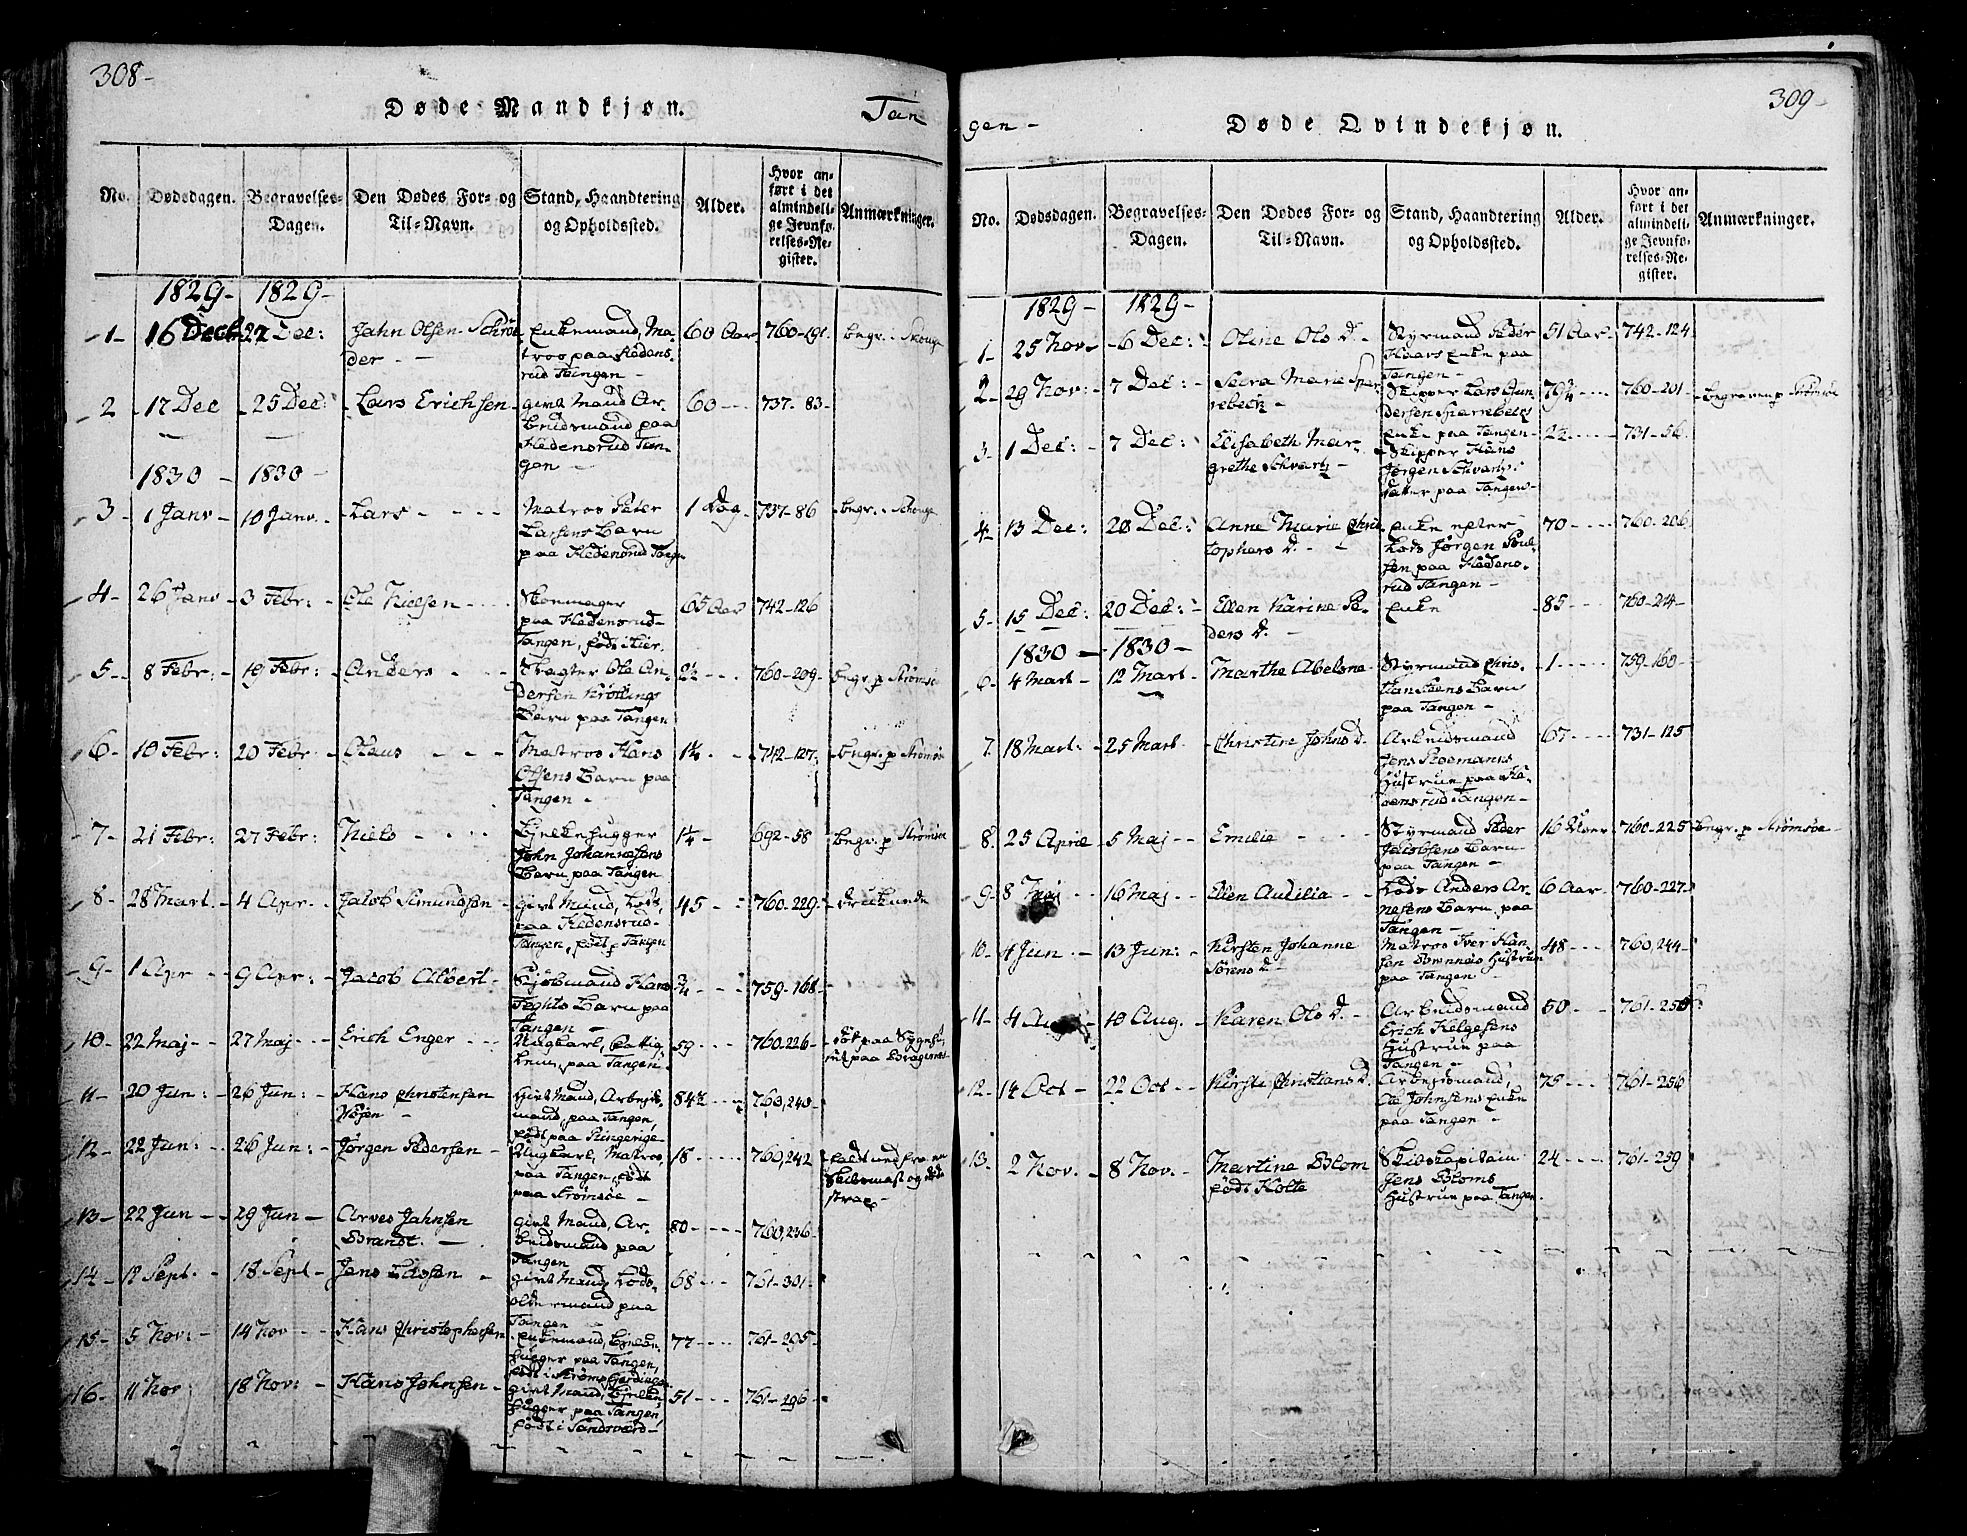 308-
Døde Mandkjøn.
Tan
No.
Dødsdagen.
Begravelses-
Dagen.
Den Dødes For- og
Til-Navn.
Stand, Haandtering
og Opholdssted.
Alder.
Hvor an-
ført i det
almindeli-
ge Jevnfø-
relses-Re-
gister.
Anmærkninger.
1829- 1829-
1- 16 Decb 27 Dec: Jahn Olsen Schrö- Enkemand, Ma- 60 Aar 760-191. begr.
der - - tros paa Hedens-
rud Tangen-
2 17 Dec - 25 Dec: Lars Erichsen- givt Mand Ar- 60 - - 737-83-
beidsmand paa
Hedensrud Tan-
gen -
1830 - 1830 -
3- 1 Janv - 10 Janv. - Lars - - - - Matros Peter 1 Dag 737-86 - begr.
Larsens Barn
paa Hedensrud Tangen
4- 26 Janv - 3 Febr: - Ole Nielsen - - - Skomager 65 Aar 742-126
paa Hedensrud-
Tangen, født i Lier.
5- 8 Febr: - 19 Febr: - Anders - - - Ole An- 2½ - - - 760-209- begr. p Strømsø
dersen
Barn paa Tangen
6- 10 Febr: 20 Febr - Claus - - - Matros Hans 1¼ - - 742-127. begr. p Strømsø
Olsens Barn paa
Tangen -
7- 21 Febr: - 27 Febr: - Niels - - - Bjelkehugger 1¼ - 692-58 begr. p Strømsø
John Johannesens
Barn paa Tangen
8- 28 Mart. - 4 Apr. - Jacob Simundsen - givt Mand, Lods, 45 - - 760-229- druknede
paa Hedensrud-
Tangen, født p Tangen
9- 1 Apr - - 9 Apr: - Jacob Albert - Hans ¾ - - - 759-168-
Barn paa
Tangen -
10- 22 Maj - - 27 Maj - - - Erich Enger - - - Ungkarl, Fattig- 59 - - - 760-226- død paa Sygehu-
lem, paa Tangen set paa Bragernes-
11- 20 Jun: - 26 Jun: - Hans Christensen Givt Mand, Arbejds- 84½ - - 760,240-
mand, paa Tangen,
født paa Ringerige-
12- 22 Jun: - 26 Jun: - Jørgen Pedersen - Ungkarl, Matros, 18 - - - - 760,242 faldt ned fra en
paa Tangen, født Skibsmast og døde
paa Strømsøe - strax -
13- 22 Jun - - 29 Jun - Jahnsen givt Mand, Ar- 80 - - - - 760,236-
Brandt. - beidsmand paa
Tangen
14- 12 Sept. - - 18 Sept - Jens givt Mand, Lods- 68 - - - 761-301-
oldermand paa
Tangen -
15- 5 Nov: - 14 Nov - - Hans Christophersen Enkemand, Bjelke- 77 - - - - 761-295-
hugger paa Tangen,
født i
16- 11 Nov: 18 Nov: - Hans Johnsen - givt Mand, Bjelke- 51 - - - 761-296-
hugger paa Tangen,
født i Sandsværd-
309-
gen-
Døde Qvindekjøn.
No.
Dødsdagen.
Begravelses-
Dagen.
Den Dødes For- og
Til-Navn.
Stand, Haandtering
og Opholdssted.
Alder.
Hvor an-
ført i det
almindeli-
ge Jevnfø-
relses-Re-
gister.
Anmærkninger.
1829- 1829-
1- 25 Nov - 6 Dec: Oline Ols D. - Styrmand Peder 51 Aar - 742-124
Enke paa
Tangen -
2- 29 Nov: - 7 Dec: - Marie Spar- Skipper Lars Gun- 79¾ - - - 760-201 - begraven p Strømsøe
rebeck - dersen Sparrebecks
Enke paa Tangen-
3- 1 Dec: - 7 Dec: Elisabeth Mar- Skipper Hans 2½ - - - 731-56.
grethe Schvartz - Jørgen Schvartz'
datter paa Tangen-
4- 13 Dec: 20 Dec: Anne Marie Chris- Enke efter 70 - - - - 760-206
tophers D. - - Lods Jørgen Poul-
sen paa Hedens-
rud Tangen -
5- 15 Dec: 20 Dec: - Ellen Karine Pe- Enke - 85 - - - 760-214-
ders D. -
1830 - 1830 -
6- 4 Mart - 12 Mart - Marthe Abelone Styrmand Chris- 1 - - - - 759-160-
tian Barn
paa Tangen -
7. 18 Mart: - 25 Mart - Christine Johns D. Arbeidsmand 67 - - - - 731-125
Jens
Hustrue paa He-
densrud Tangen-
8. 25 April - 5 Maj - - Emilie - - - Styrmand Peder 16 Uger 760-225 begr. p Strømsøe -
Jacobsens Barn
paa Tangen -
9- 8 Maj - 16 Maj - Ellen - - Lods Anders Ar- 6 Aar - 760-227-
nesens Barn, paa
Tangen -
10- 4 Jun - 13 Jun: - Kirsten Johanne Matros Iver Han- 48 - - 760,244-
Sørens D. - sen Hustrue
paa Tangen -
11- 4 Aug - 10 Aug. - Karen Ols D. - Arbeidsmand 50 - - - 761-250
Erich Helgesens
Hustrue paa
Tangen -
12- 14 Oct - 22 Oct - - Kirsti Christians D. Arbejdsmand, 75 - - - 761-256
Ole Johnsens Enke
paa Tangen -
13. 2 Nov. - 8 Nov. - Martine Blom Skibskapitain 24 - - - 761-259
født Holte Jens Bloms
Hustrue paa Tangen.